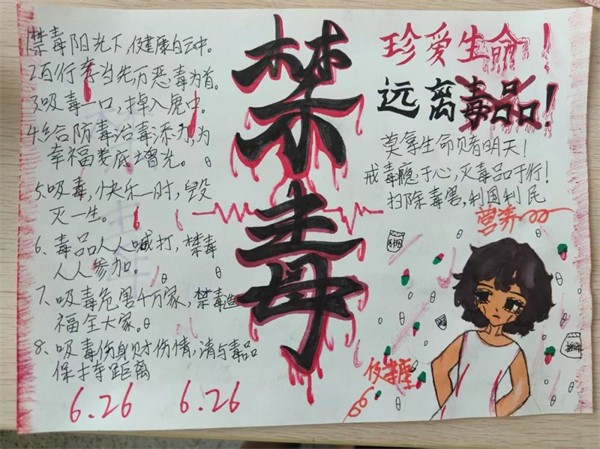 1.禁毒阳光下,健康自云中。
2.百行孝当先万恶毒为首。
3.吸毒一口,掉入鬼中。
4.给防毒治毒添力,为
幸福娄底增光。
5.吸毒,快乐一时,毁
灭一生。
6、毒品人人喊打,禁毒
人人参加。
7、吸毒危害千万家,禁毒造
福全大家。
8、吸毒伤身财伤情,请与毒品
保持距离
6.26 6.26
禁毒
珍爱生命!
远离毒品!
莫等生命见着明天!
戒毒隐于心,灭毒品于行!
扫除毒害,利国利民